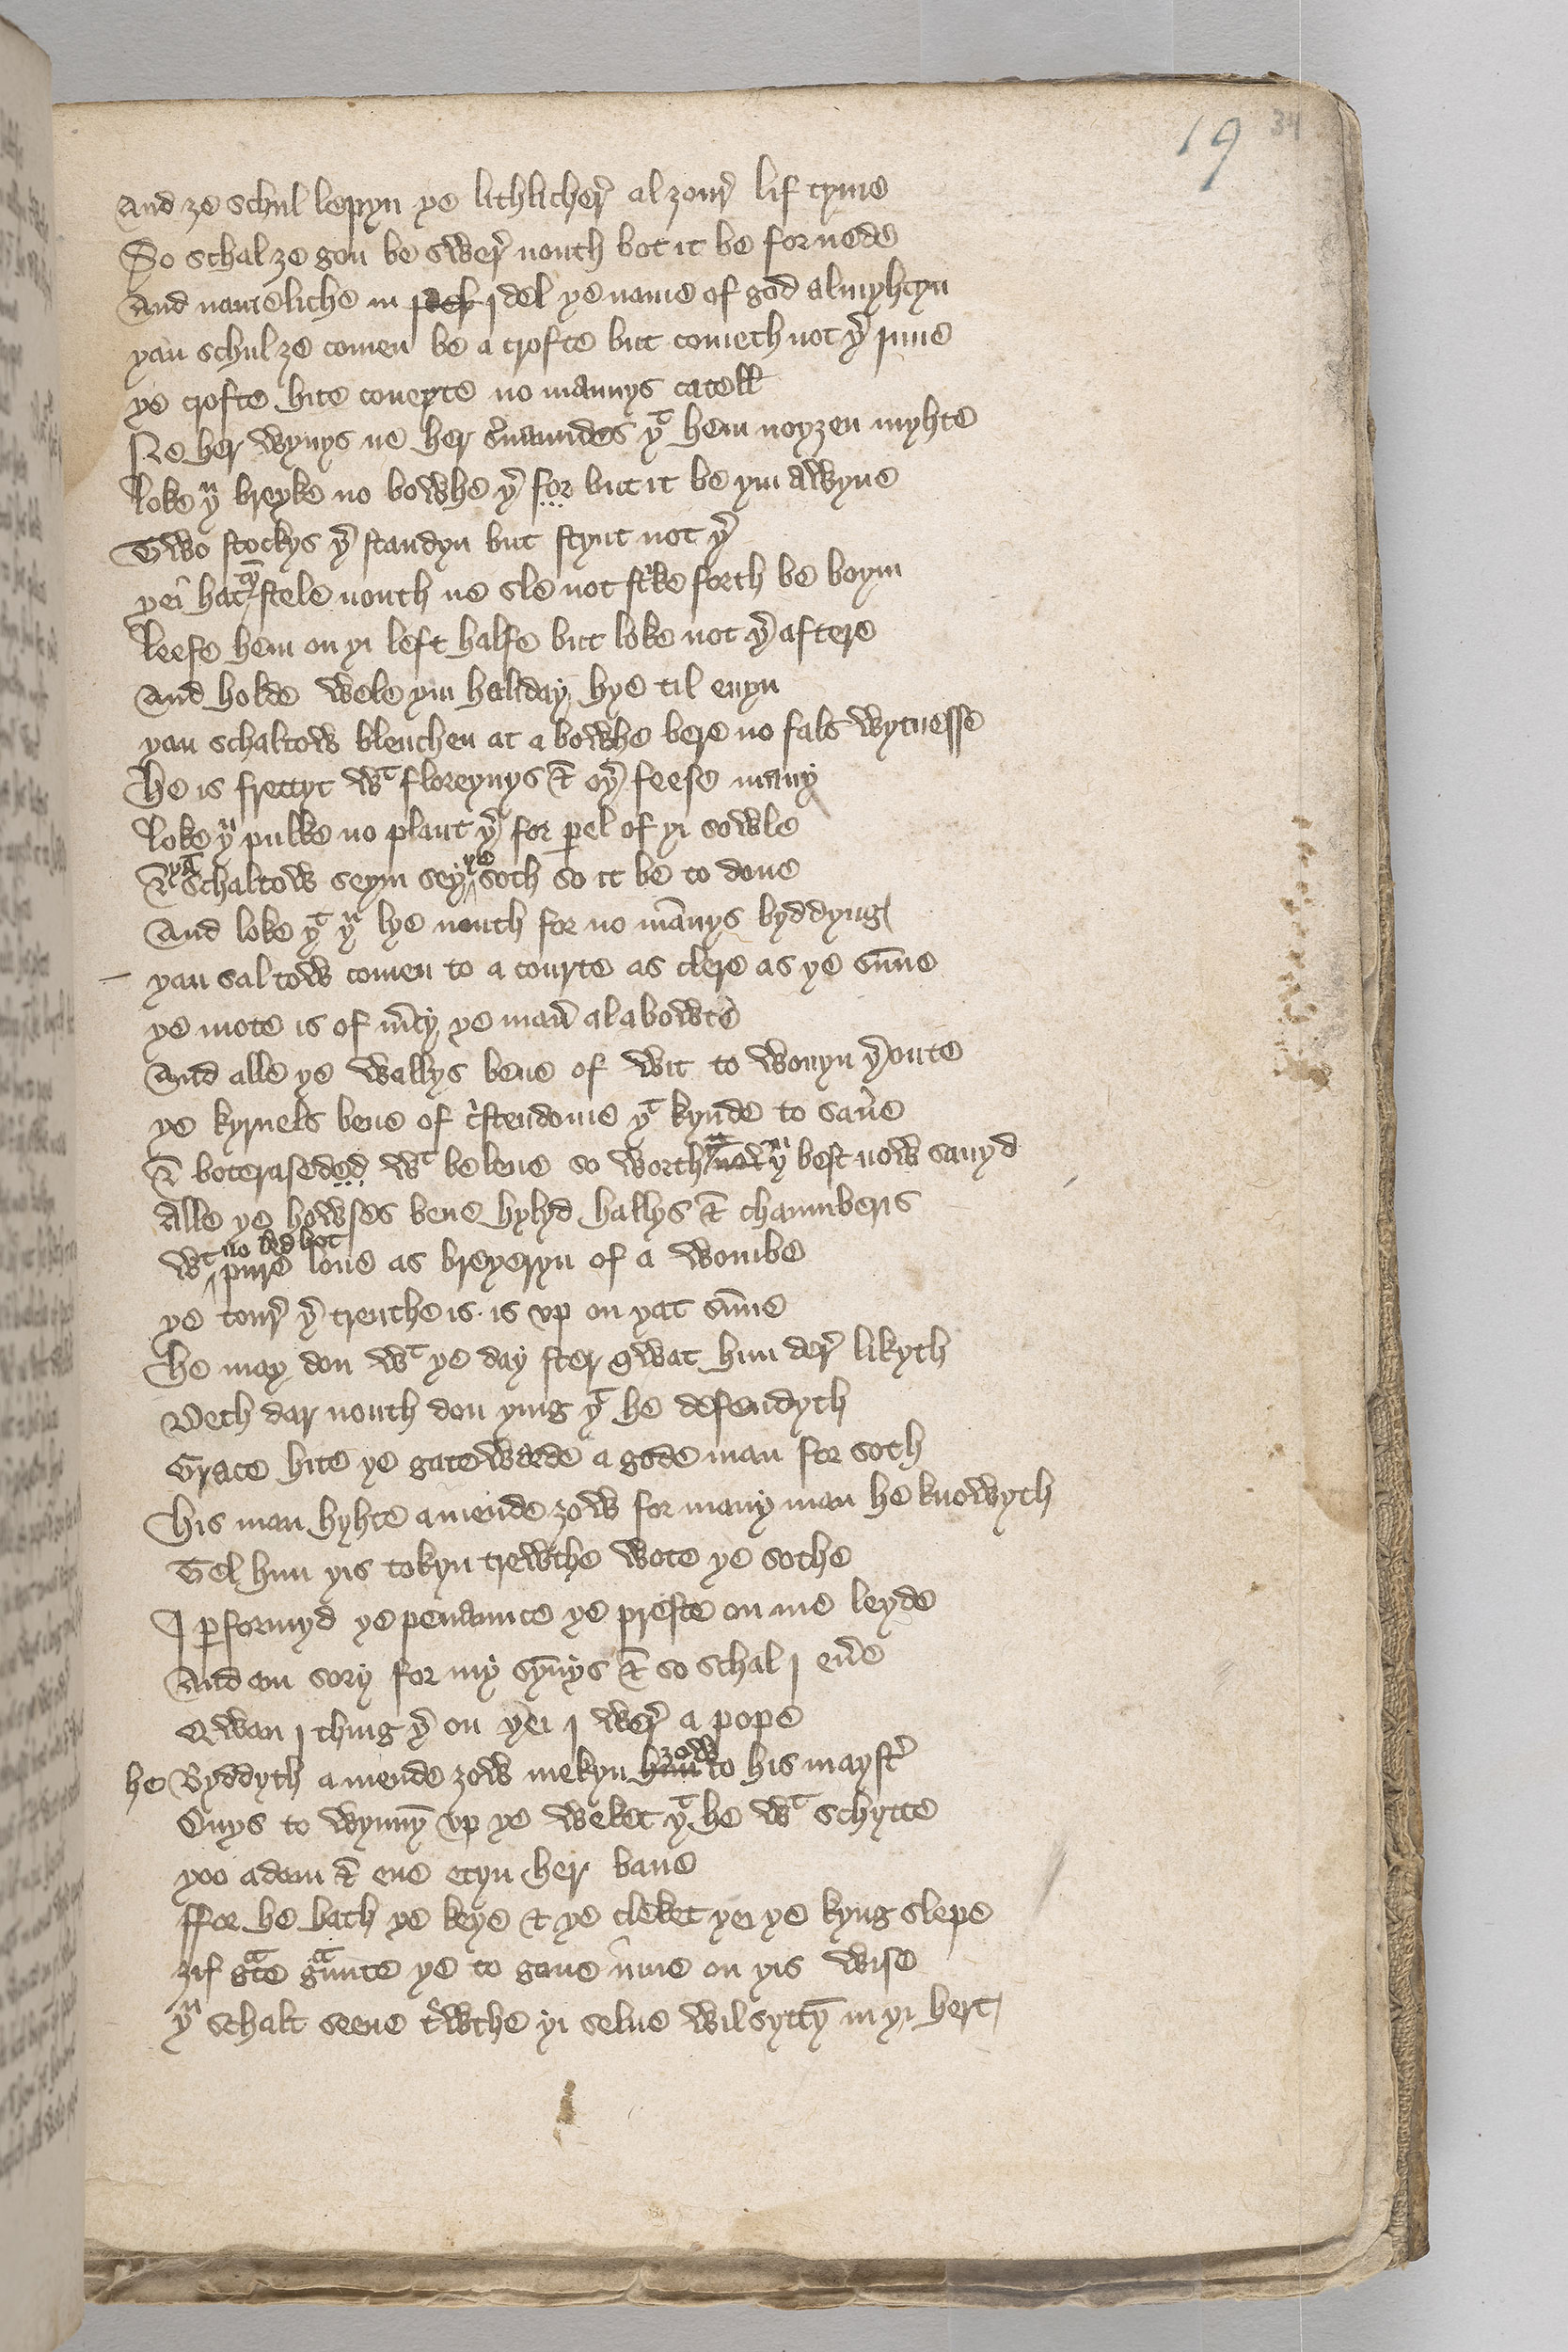 19 34
And ze schul lepyn ye lithlicher̉ al zour̉ lif tyme
So schal ze gon be swer̉ nouth bot it be for nede
And nameliche in idel ye name of god almyhtyn
yan schul ze comen be a crofte but cometh not yͬ inne
ye crofte hite coueyte no mannys catell
Ne her wyuys ne her ẜuauntes yͭ hem noyzen myhte
loke yͧ breyke no bowhe yͬ for but it be yin awyne
Two stockys yͬ standyn but stynt not yͬ
yei hat stele nouth ne sle not st'ke forth be boyin
leefe hem on yi left halfe but loke not yͬ aftere
And holde wele yin haliday hye til euyn
yan schaltow blenchen at a bowhe bere no fals wytnesse
He is frettyt wͭ floreynys & oyͬ feese many
loke yͧ pulke no plant yͬ for ꝑel of yi sowle
& yͣ schaltow seyin sey ye soth so it be to done
And loke yͭ yͧ lye nouth for no mānys byddyng
yan saltow comen to a courte as clere as ye sūne
ye mote is of m̉cy ye man̉ al abowte
And alle ye wallys bene of wit to wonyn yͬ oute
ye kyrnels bene of c̉stendome yͭ kynde to saủe
& boteraseded wͭ beleue so worth yͧ best now sauyd
Alle ye howses bene hylyd hallys & chaumberis
wͭ no led bot pure loue as breyeryn of a wombe
ye tour̉ yͬ treuthe is is vp on yat sūne
He may don wͭ ye day ster qwat him der̉ likyth
Deth dar nouth don ying yͭ he defendyth
Grace hite ye gatewarde a gode man for soth
His man hyhte amende zow for many man he knowyth
Tel him yis tokyn trewthe wote ye sothe
I ꝑformyd ye penaunce ye preste on me leyde
And am sory for my synys & so schal i eủe
Qwan i thing yͬ on yei i wer̉ a pope
he Byddyth amende zow mekyn him zow to his mayst̉
Onys to wynnȳ vp ye weket yͭ he wͭ schytte
yoo adam & eue etyn her bane
ffor he hath ye keye & ye cleket yei ye kyng slepe
zif gͣce gͣunte ye to gone inne on yis wise
yͧ schalt seene t̉wthe yi selue wil syttȳ in yi hert